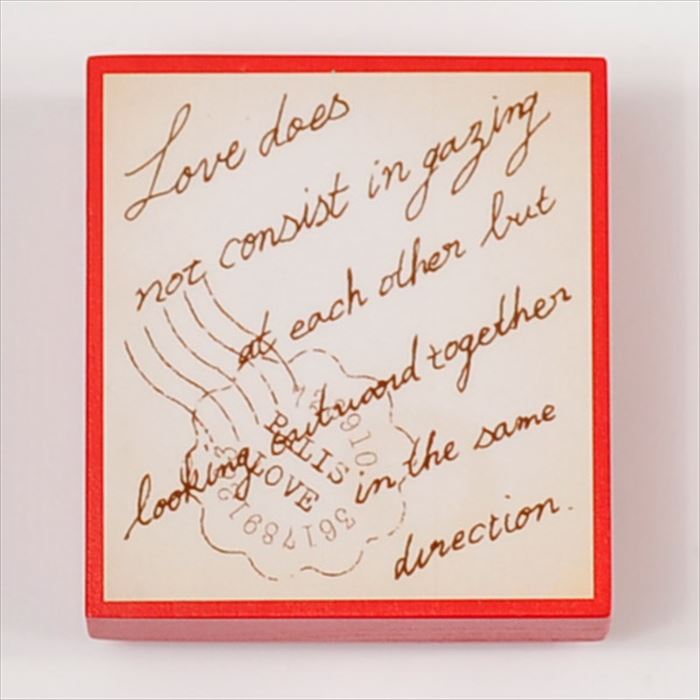 Love does
not consist in gazing
at each other but
looking outward together
in the same
direction.
LOVE